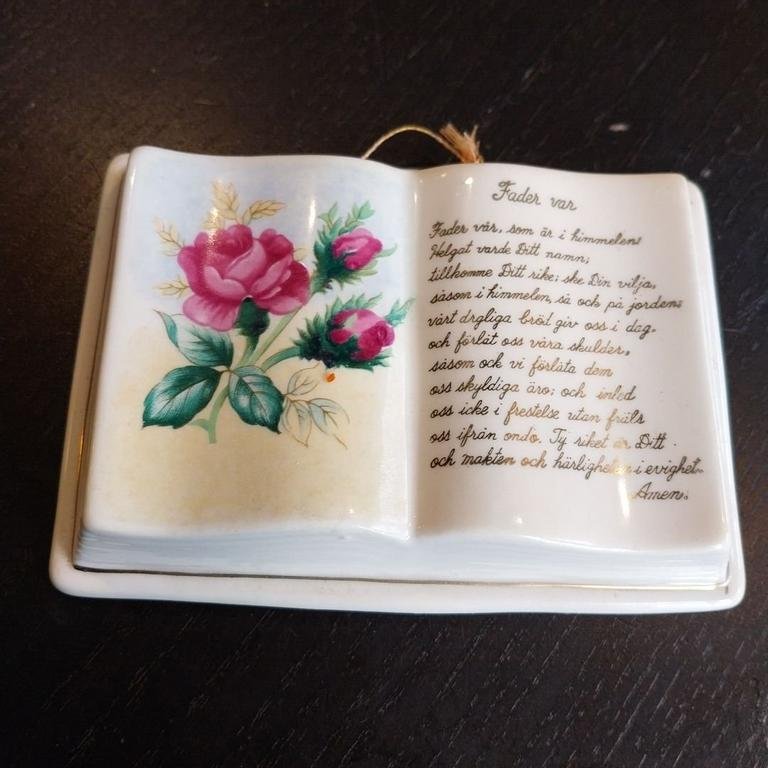 Fader var
Fader vår, som är i himmelen!
Helgat varde Ditt namn;
tillkomme Ditt rike; ske Din vilja,
såsom i himmelen, så ock på jorden;
vårt drgliga bröd giv oss i dag.
och förlåt oss våra skulder,
såsom ock vi förlåta dem
oss skyldiga äro; och inled
oss icke i frestelse utan fräls
oss ifrån ondo. Ty riket är Ditt.
och makten och härligheten i evighet.
Amen.